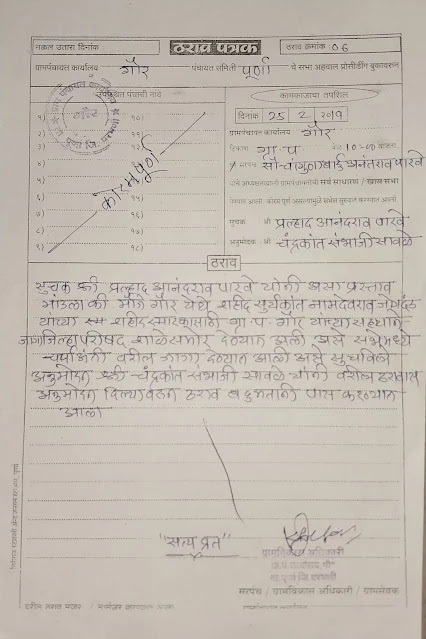 नक्कल उतारा दिनांक :
ठराव पत्रक
ठराव क्रमांक : 06
ग्रामपंचायत कार्यालय गौर पंचायत समिती पूर्णा चे सभा अहवाल प्रोसीडींग बुकावरून
उपस्थित पंचांची नावे
कामकाजाचा तपशिल
१)
१०)
२)
११)
३)
१२)
४)
१३)
५)
१४)
६)
१५)
७)
१६)
८)
१७)
९)
१८)
कोरमपूर्ण
दिनांक 25/2/2019
ग्रामपंचायत कार्यालय गौर
ठिकाण ग्रा.पं वेळ 10-00 वाजता
सौ चांगुणाबाई अनंतराव पारवे
यांचे अध्यक्षतेखाली ग्रामपंचायतीची सर्व साधारण / खास सभा
घेण्यात आली कोरम पूर्ण असल्यामुळे सभेस सुरुवात करण्यात आली
सूचक श्री प्रल्हाद आनंदराव पारवे
अनुमोदक श्री चंद्रकांत संभाजी सावळे
ठराव
सुचक श्री प्रल्हाद आनंदराव पारवे यांनी असा प्रस्ताव
मांडला की मौजे गौर येथे शहिद सुर्यकांत नामदेवराव
यांच्या शहीद स्मारकासाठी ग्रा.पं. गौर यांच्या सहयोगाने
जागा जिल्हा परीषद शाळेसमोर देण्यात आली असे सभेमध्ये
चर्चाअंती वरील जागा देण्यात आली असे सुचविले
अनुमोदन श्री चंद्रकांत संभाजी सावळे यांनी वरील ठरावास
अनुमोदन दिल्यावरून ठराव बहुमतानी पास करण्यात
आला
"सत्य प्रत"
ग्रामविकास अधिकारी
सरपंच / ग्रामविकास अधिकारी / ग्रामसेवक